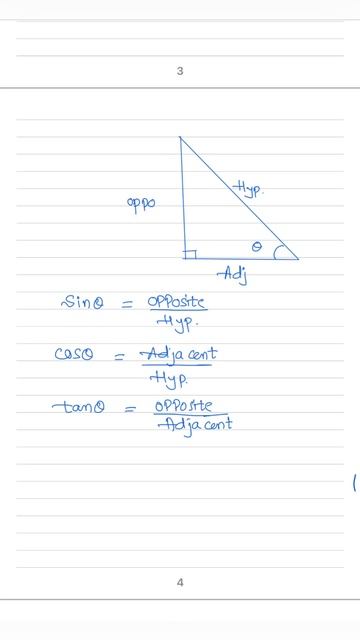 3
Hyp.
oppo
θ
Adj
Sinθ = opposite
Hyp.
cosθ = Adjacent
Hyp.
tanθ = opposite
Adjacent
4